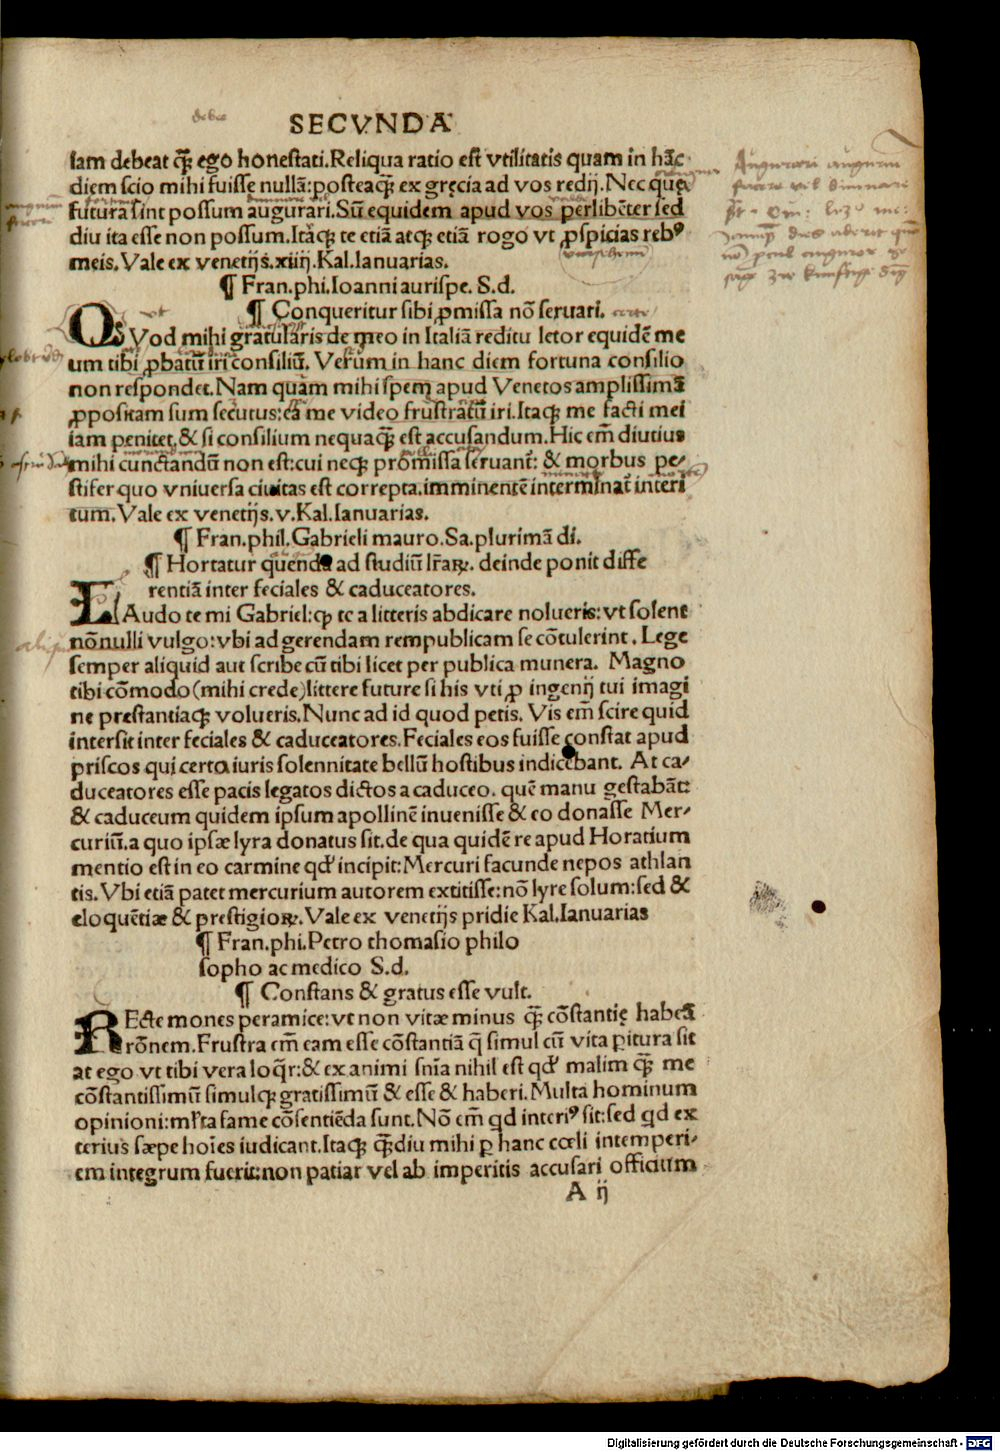 SECVNDA
ſam debeat q̄ꝫ ego honeſtati.Reliqua ratio eſt vtilitatis quam in hāc
diem ſcio mihi fuiſſe nullā:poſteaq̄ꝫ ex gręcia ad vos redij.Nec quę
futura ſint poſſum augurari.Sū equidem apud vos perlibēter ſed
diu ita eſſe non poſſum.Itaqꝫ te etiā atqꝫ etiā rogo vt ꝓſpicias rebꝰ
meis.Vale ex venetijs.xiiij.Kal.Ianuarias.
¶ Fran.phi.Ioanni auriſpe.S.d.
¶ Conqueritur ſibi ꝓmiſſa nō ſeruari.
QVod mihi gratularis de meo in Italiā reditu letor equidē me
um tibi ꝓbatū iri conſiliū. Verum in hanc diem fortuna conſilio
non reſpondet.Nam quam mihi ſpem apud Venetos ampliſſimā
ꝓpoſitam ſum ſecutus:eā me video fruſtratū iri.Itaqꝫ me facti mei
iam penitet.& ſi conſilium nequaq̄ꝫ eſt accuſandum.Hic em̄ diutius
mihi cunctandū non eſt:cui neqꝫ promiſſa ſeruant᷑: & morbus pe⸗
ſtifer quo vniuerſa ciuitas eſt correpta.imminentē interminat᷑ interi
tum.Vale ex venetijs.v.Kal.Ianuarias.
¶ Fran.phil.Gabrieli mauro.Sa.plurimā di.
¶ Hortatur quendā ad ſtudiū lr̄aꝝ. deinde ponit diffe
rentiā inter feciales & caduceatores.
LAudo te mi Gabriel:ꝙ te a litteris abdicare nolueris:vt ſolent
nōnulli vulgo:vbi ad gerendam rempublicam ſe cōtulerint. Lege
ſemper aliquid aut ſcribe cū tibi licet per publica munera. Magno
tibi cōmodo(mihi crede)littere future ſi his vti ꝓ ingenij tui imagi
ne preſtantiaqꝫ volueris.Nunc ad id quod petis. Vis em̄ ſcire quid
interſit inter feciales & caduceatores.Feciales eos fuiſſe conſtat apud
priſcos qui certa iuris ſolennitate bellū hoſtibus indicebant. At ca⸗
duceatores eſſe pacis legatos dictos a caduceo. quē manu geſtabāt:
& caduceum quidem ipſum apollinē inueniſſe & eo donaſſe Mer⸗
curiū.a quo ipſæ lyra donatus ſit.de qua quidē re apud Horatium
mentio eſt in eo carmine qđ incipit:Mercuri facunde nepos athlan
tis.Vbi etiā patet mercurium autorem extitiſſe:nō lyre ſolum:ſed &
eloquētiæ & preſtigioꝝ.Vale ex venetijs pridie Kal.Ianuarias
¶ Fran.phi.Petro thomaſio philo
ſopho ac medico S.d.
¶ Conſtans & gratus eſſe vult.
REcte mones peramice:vt non vitæ minus q̄ꝫ cōſtantię habeā
rōnem.Fruſtra em̄ eam eſſe cōſtantiā q̄ ſimul cū vita ꝑitura ſit
at ego vt tibi vera loq̄r:& ex animi ſn̄ia nihil eſt qđ malim q̄ꝫ me
cōſtantiſſimū ſimulqꝫ gratiſſimū & eſſe & haberi.Multa hominum
opinioni:ml̄ta fame cōſentiēda ſunt.Nō em̄ qd interiꝰ ſit:ſed qd ex
terius ſæpe hoīes iudicant.Itaqꝫ q̄ꝫdiu mihi ꝑ hanc cœli intemperi⸗
em integrum fuerit:non patiar vel ab imperitis accuſari officium
A ij
Digitalisierung gefördert durch die Deutsche Forschungsgemeinschaft - DFG